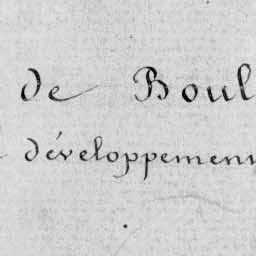 de Boul
développemen